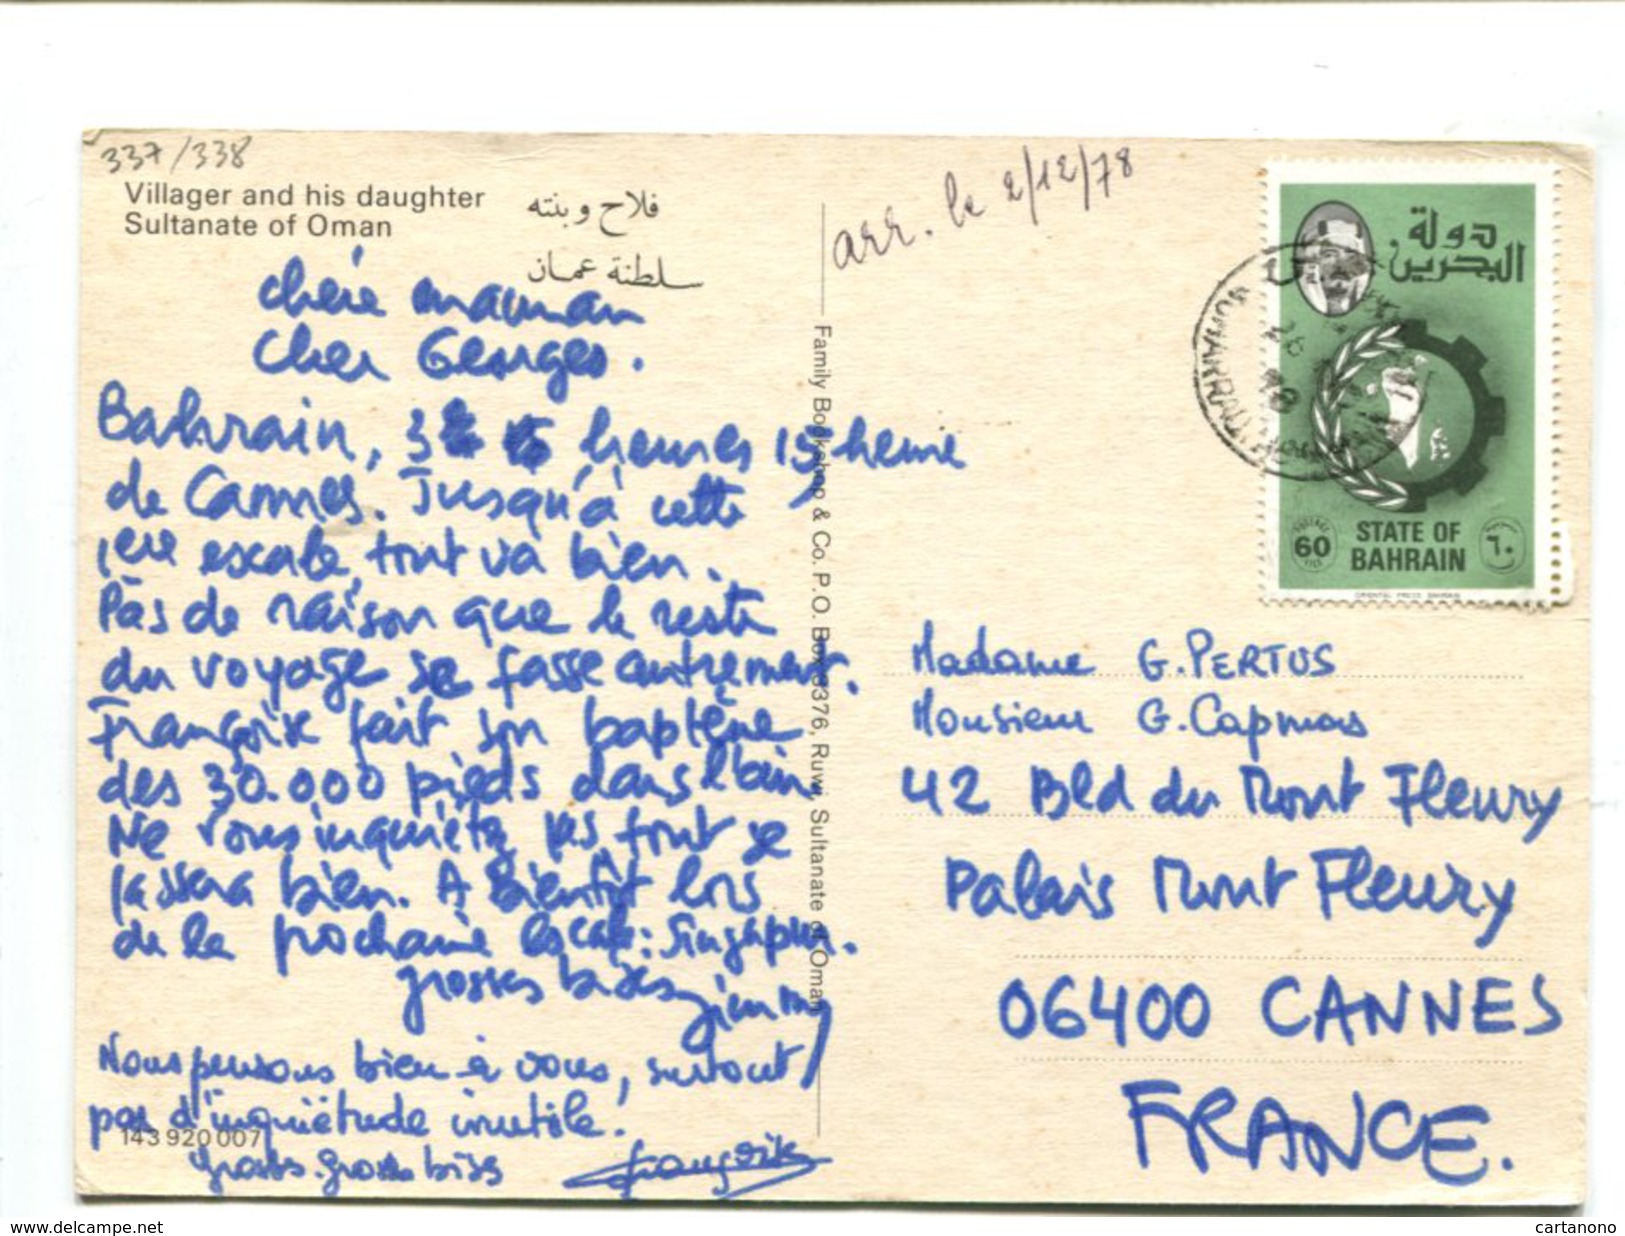 337/338
Villager and his daughter
Sultanate of Oman
فلاح وبنته
سلطنة عمان
chère maman
cher Georges.
Bahrain, heures 15 heure
de Cannes. Jusqu'à cette
1ere escale, tout va bien.
Pas de raison que le reste
du voyage se fasse autrement.
Françoise fait son baptême
des 30.000 pieds dans l'air.
Ne vous inquiétez pas tout se
passera bien. A Bientôt lors
de la prochaine escale: Singapur.
grosses bises
Nous pensons bien à vous, surtout
pas d'inquiétude inutile!
grosses grosses bises Françoise
143 920 007
Family Bookshop & Co. P.O. Box 3376, Ruwi, Sultanate of Oman
arr. le 2/12/78
دولة
البحرين
POSTAGE
60
FILS
STATE OF
BAHRAIN
٦٠
ORIENTAL PRESS, BAHRAIN
Madame G. PERTUS
Monsieur G. Capmas
42 Bld du Mont Fleury
Palais Mont Fleury
06400 CANNES
FRANCE.
www.delcampe.net
cartanono